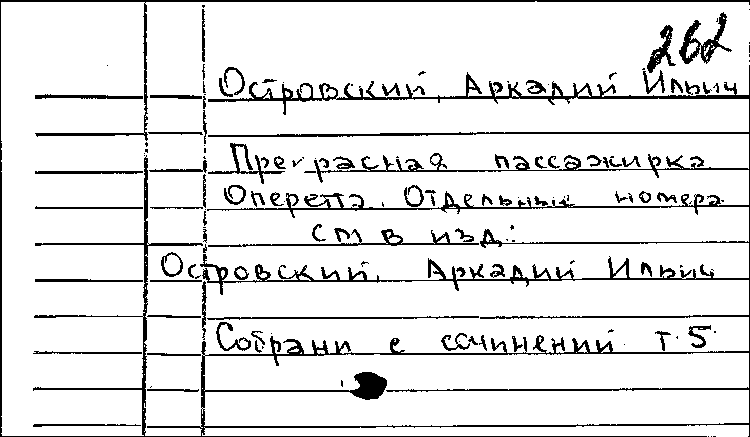 262
Островский, Аркадий Ильич
Прекрасная пассажирка
Оперетта. Отдельные номера
см в изд:
Островский, Аркадий Ильич
Собрани е сочинений т. 5